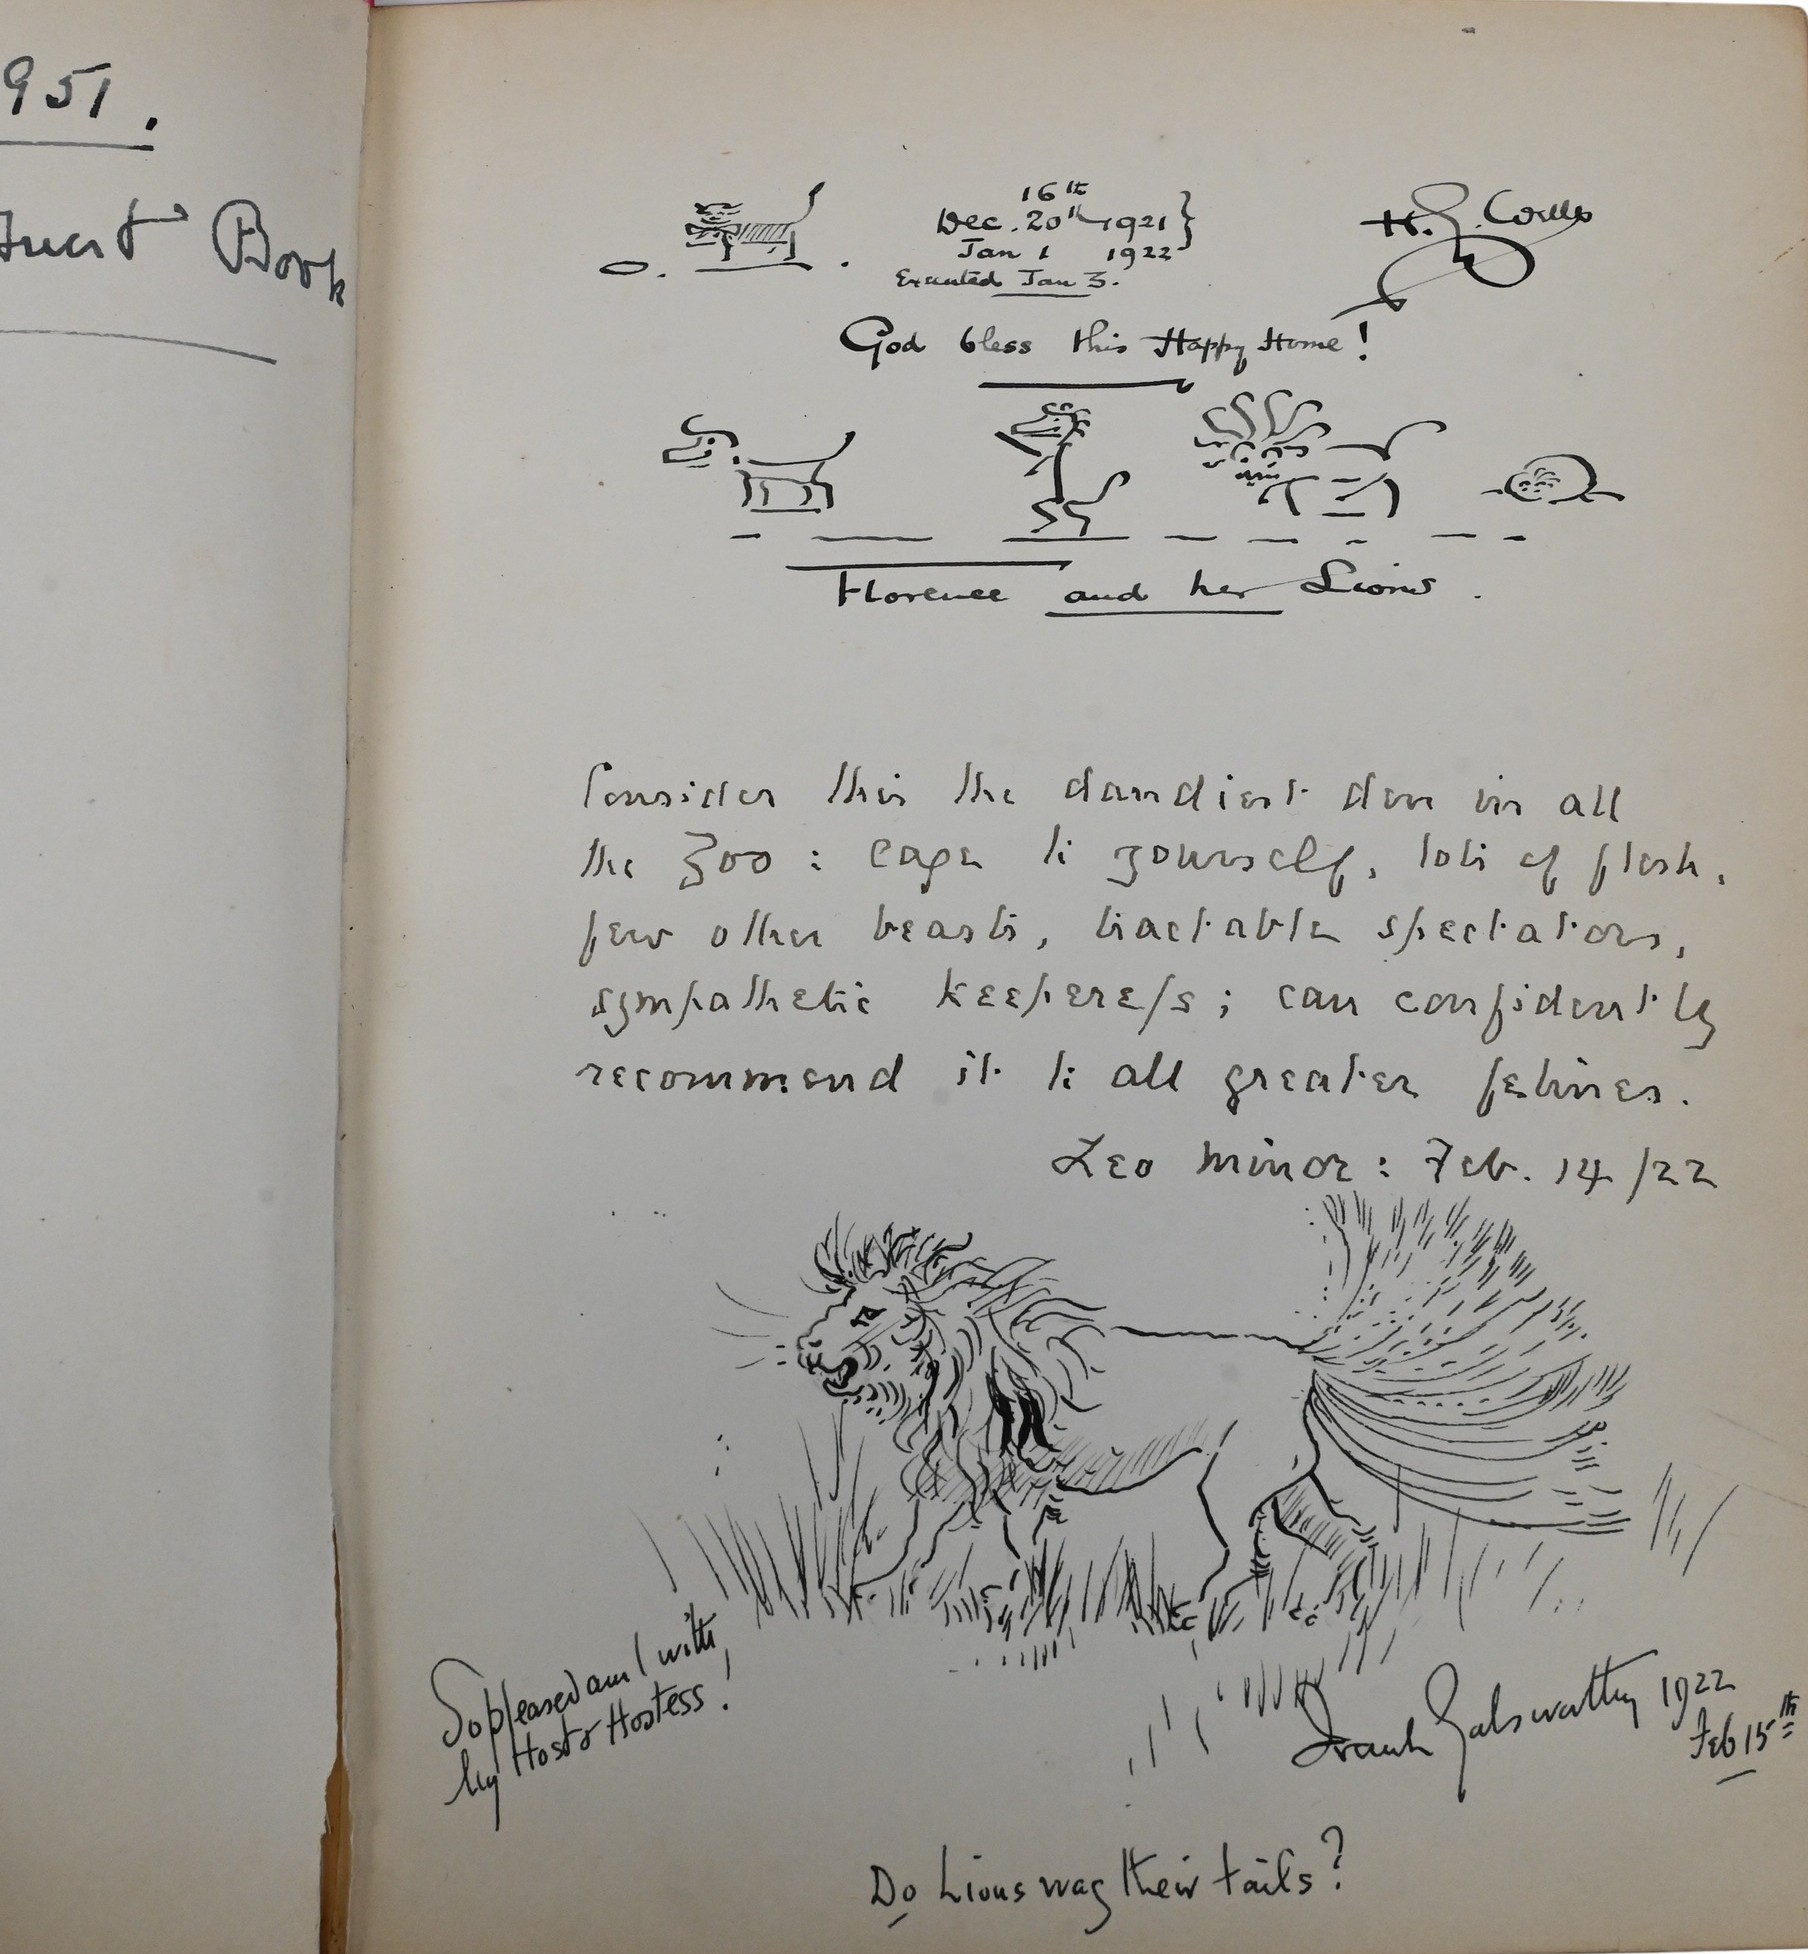 951.
Guest Book
16th
Dec. 20th 1921
Jan 1 1922
Executed Jan 3.
H. G. Wells
God bless this Happy Home!
Florence and her Lions.
Consider this the dandiest den in all
the Zoo: cage to yourself, lots of flesh,
few other beasts, tractable spectators,
sympathetic keepere/s; can confidently
recommend it to all greater felines.
Leo Minor: Feb. 14/22
So pleased am I with
my Host & Hostess!
Frank Galsworthy 1922
Feb 15th
Do Lions wag their tails?